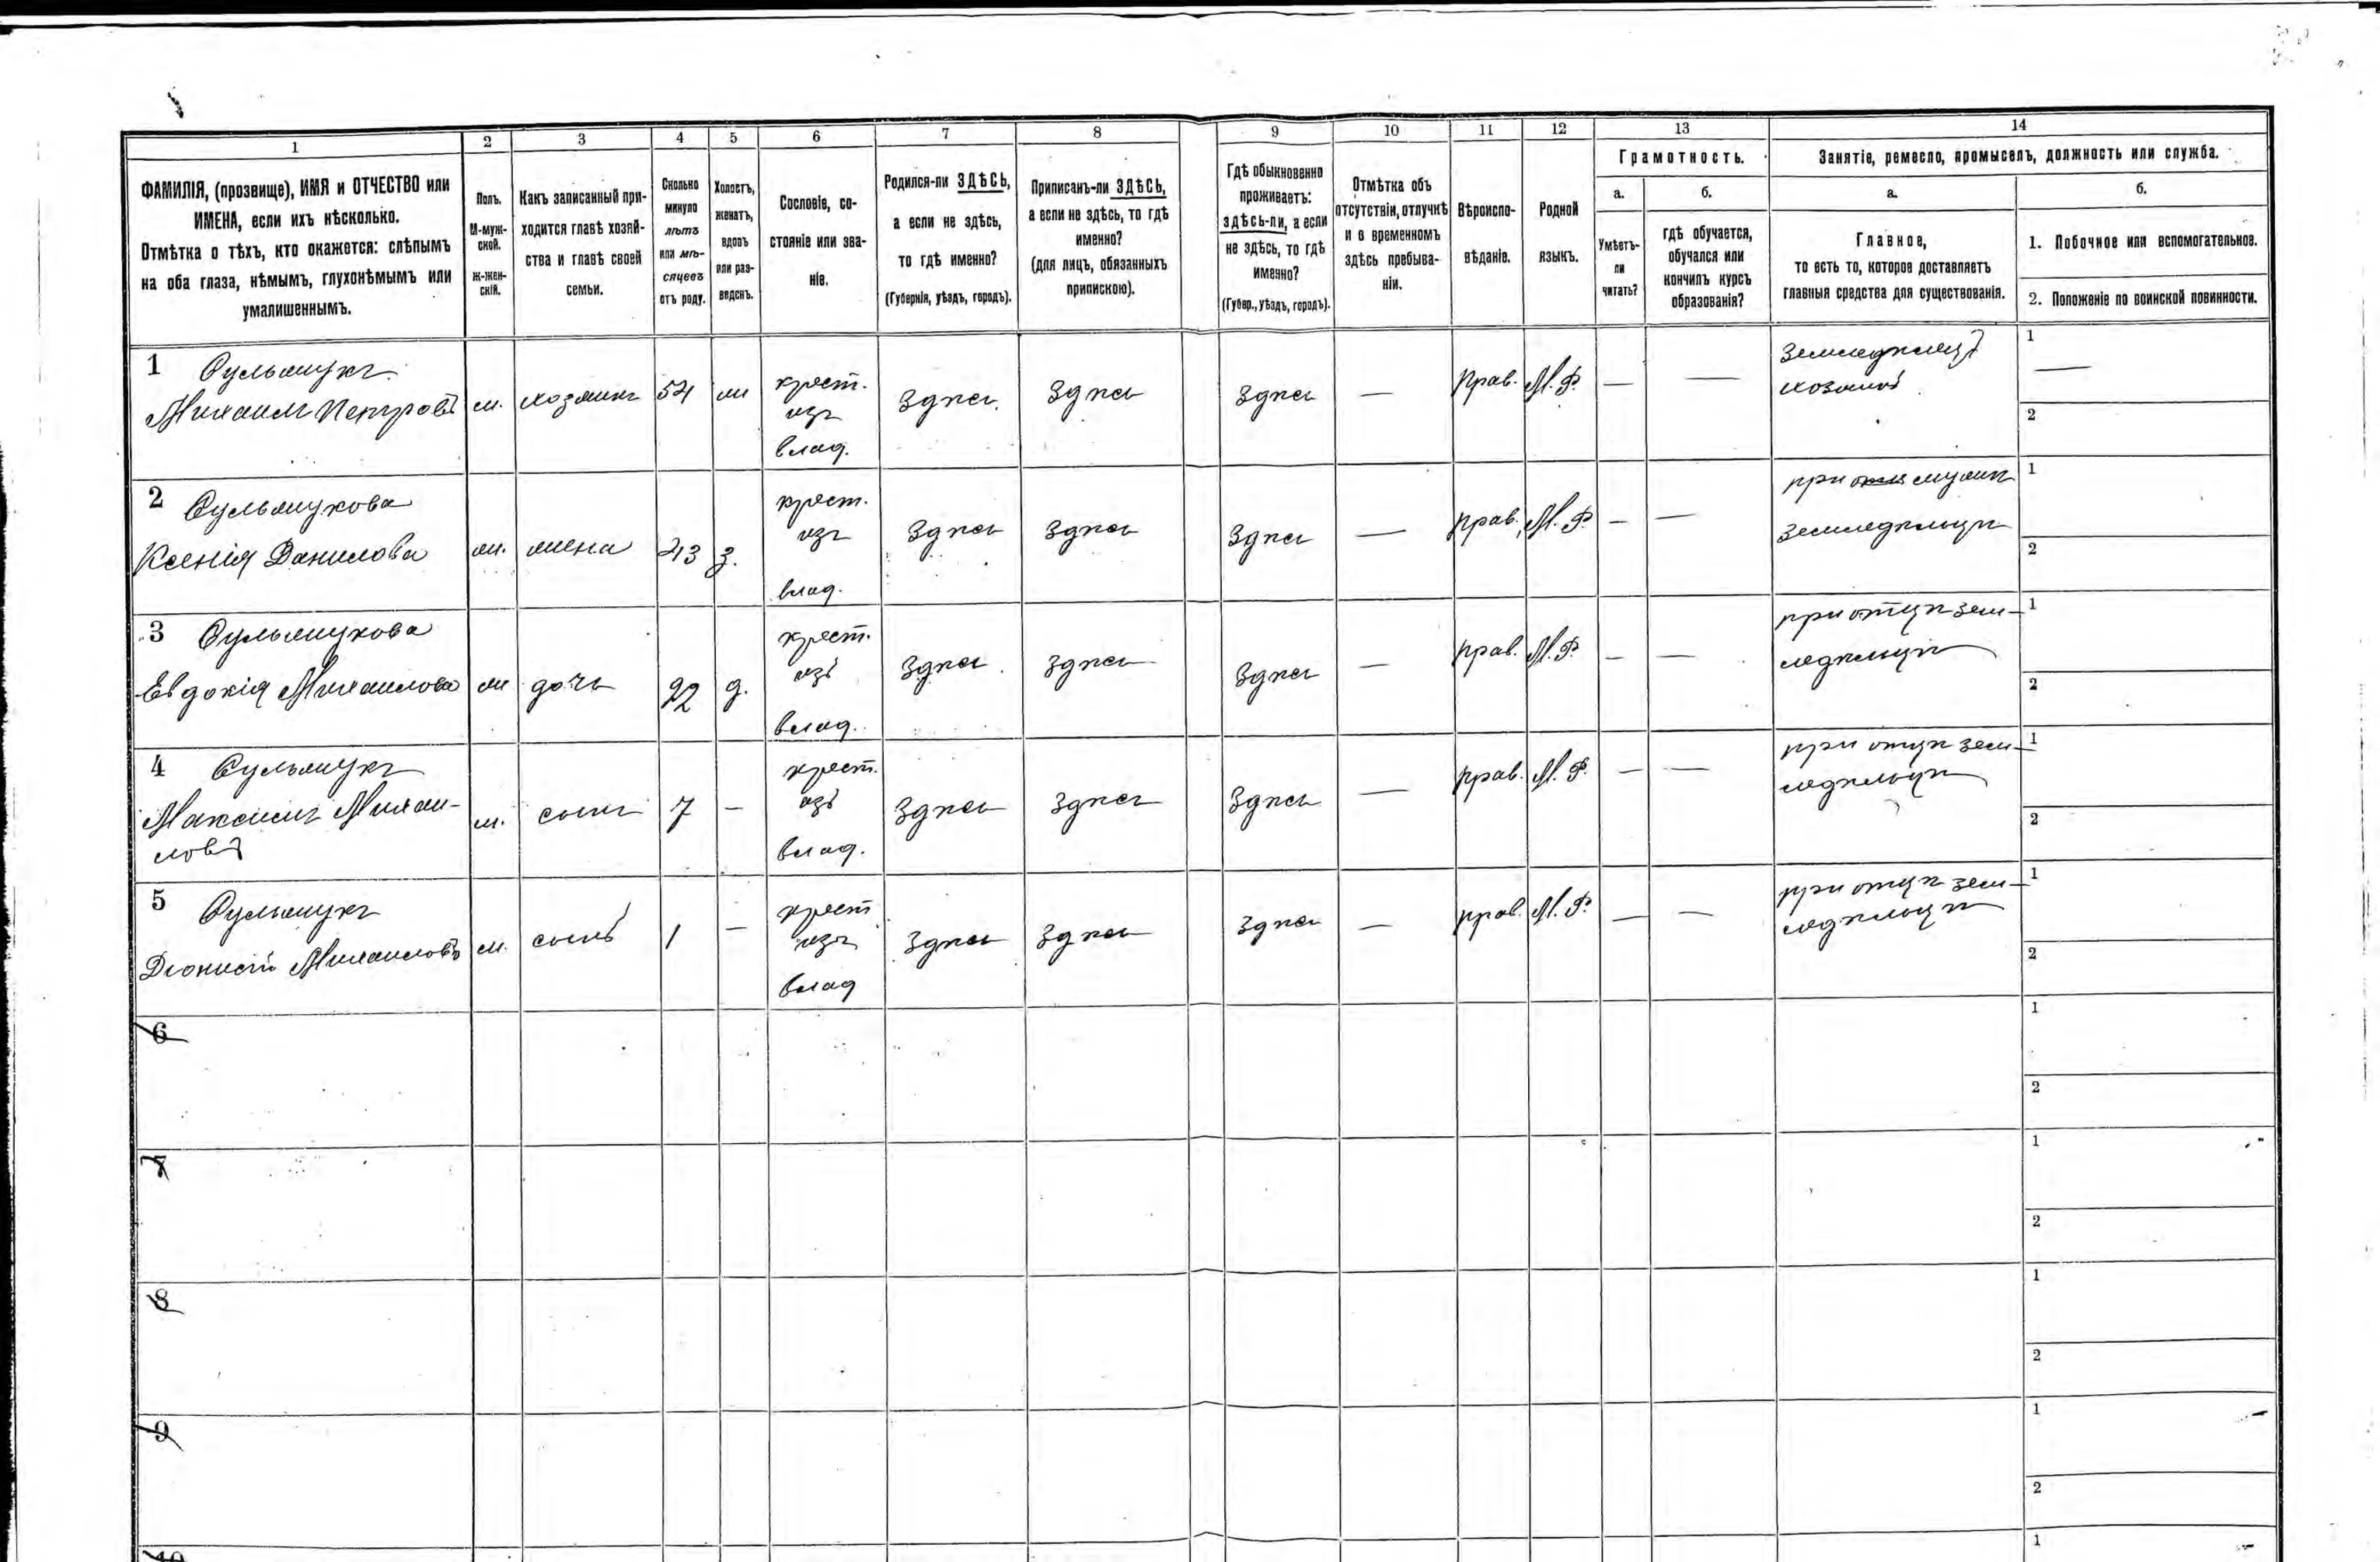 1 2 3 4 5 6 7 8 9 10 11 12 13 14
ФАМИЛІЯ, (прозвище), ИМЯ и ОТЧЕСТВО или
ИМЕНА, если ихъ нѣсколько.
Отмѣтка о тѣхъ, кто окажется: слѣпымъ
на оба глаза, нѣмымъ, глухонѣмымъ или
умалишеннымъ.
Полъ.
М-муж-
ской.
Ж-жен-
скій.
Какъ записанный при-
ходится главѣ хозяй-
ства и главѣ своей
семьи.
Сколько
минуло
лѣтъ
или мѣ-
сяцевъ
отъ роду.
Холостъ,
женатъ,
вдовъ
или раз-
веденъ.
Сословіе, со-
стояніе или зва-
ніе.
Родился-ли ЗДѢСЬ,
а если не здѣсь,
то гдѣ именно?
(Губернія, уѣздъ, городъ).
Приписанъ-ли ЗДѢСЬ,
а если не здѣсь, то гдѣ
именно?
(для лицъ, обязанныхъ
припискою).
Гдѣ обыкновенно
проживаетъ:
здѣсь-ли, а если
не здѣсь, то гдѣ
именно?
(Губер., уѣздъ, городъ).
Отмѣтка объ
отсутствіи, отлучкѣ
и о временномъ
здѣсь пребыва-
ніи.
Вѣроиспо-
вѣданіе.
Родной
языкъ.
Грамотность.
а.
Умѣетъ-
ли
читать?
б.
гдѣ обучается,
обучался или
кончилъ курсъ
образованія?
Занятіе, ремесло, промыселъ, должность или служба.
а.
Главное,
то есть то, которое доставляетъ
главныя средства для существованія.
б.
1. Побочное или вспомогательное.
2. Положеніе по воинской повинности.
1
Михаилъ Петровъ
м. хозяинъ 54 ж крест. изъ влад. Здѣсь Здѣсь Здѣсь — Прав. М.Р. — — Земледѣлецъ хозяинъ
1 —
2
2
Ксенія Данилова
ж. жена 43 з. крест. изъ влад. Здѣсь Здѣсь Здѣсь — прав. М.Р. — — при мужѣ земледѣльцѣ
1
2
3
Евдокія Михаилова
ж дочь 22 д. крест. изъ влад. Здѣсь Здѣсь Здѣсь — прав. М.Р. — — при отцѣ зем-
ледѣльцѣ
1
2
4
Максимъ Михаи-
ловъ
м. сынъ 7 — крест. изъ влад. Здѣсь Здѣсь Здѣсь — прав. М.Р. — — при отцѣ зем-
ледѣльцѣ
1
2
5
Діонисій Михаиловъ
м. сынъ 1 — крест изъ влад Здѣсь Здѣсь Здѣсь — прав. М.Р. — — при отцѣ зем-
ледѣльцѣ
1
2
6
1
2
7
1
2
8
1
2
9
1
2
10
1